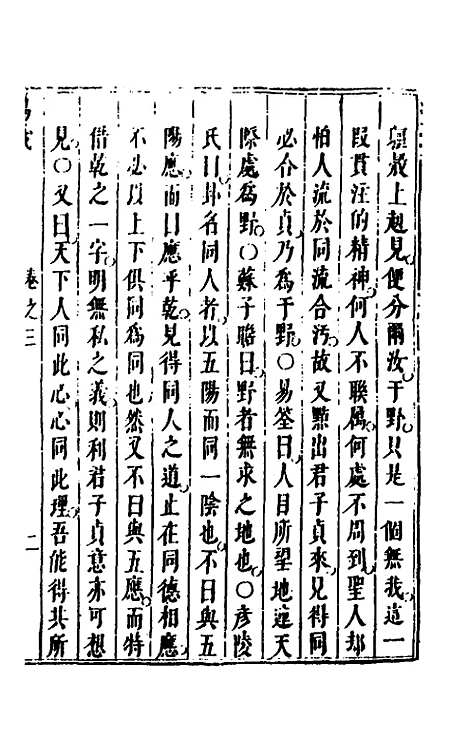 軀殼上起見便分爾汝于野只是一個無我這一
叚貫注的精神何人不聯属何處不周到聖人却
怕人流於同流合汚故又㸃出君子貞來見得同
必合於貞乃爲于野〇易筌曰人目所望地逺天
際處爲野〇蘇子瞻曰野者無求之地也〇彥陵
氏曰卦名同人者以五陽而同一陰也不曰與五
陽應而曰應乎乾見得同人之道止在同德相應
不必以上下俱同爲同也然又不曰與五應而特
借乾之一字明無私之義則利君子貞意亦可想
見〇又曰天下人同此心心同此理吾能得其所
卷之三
二